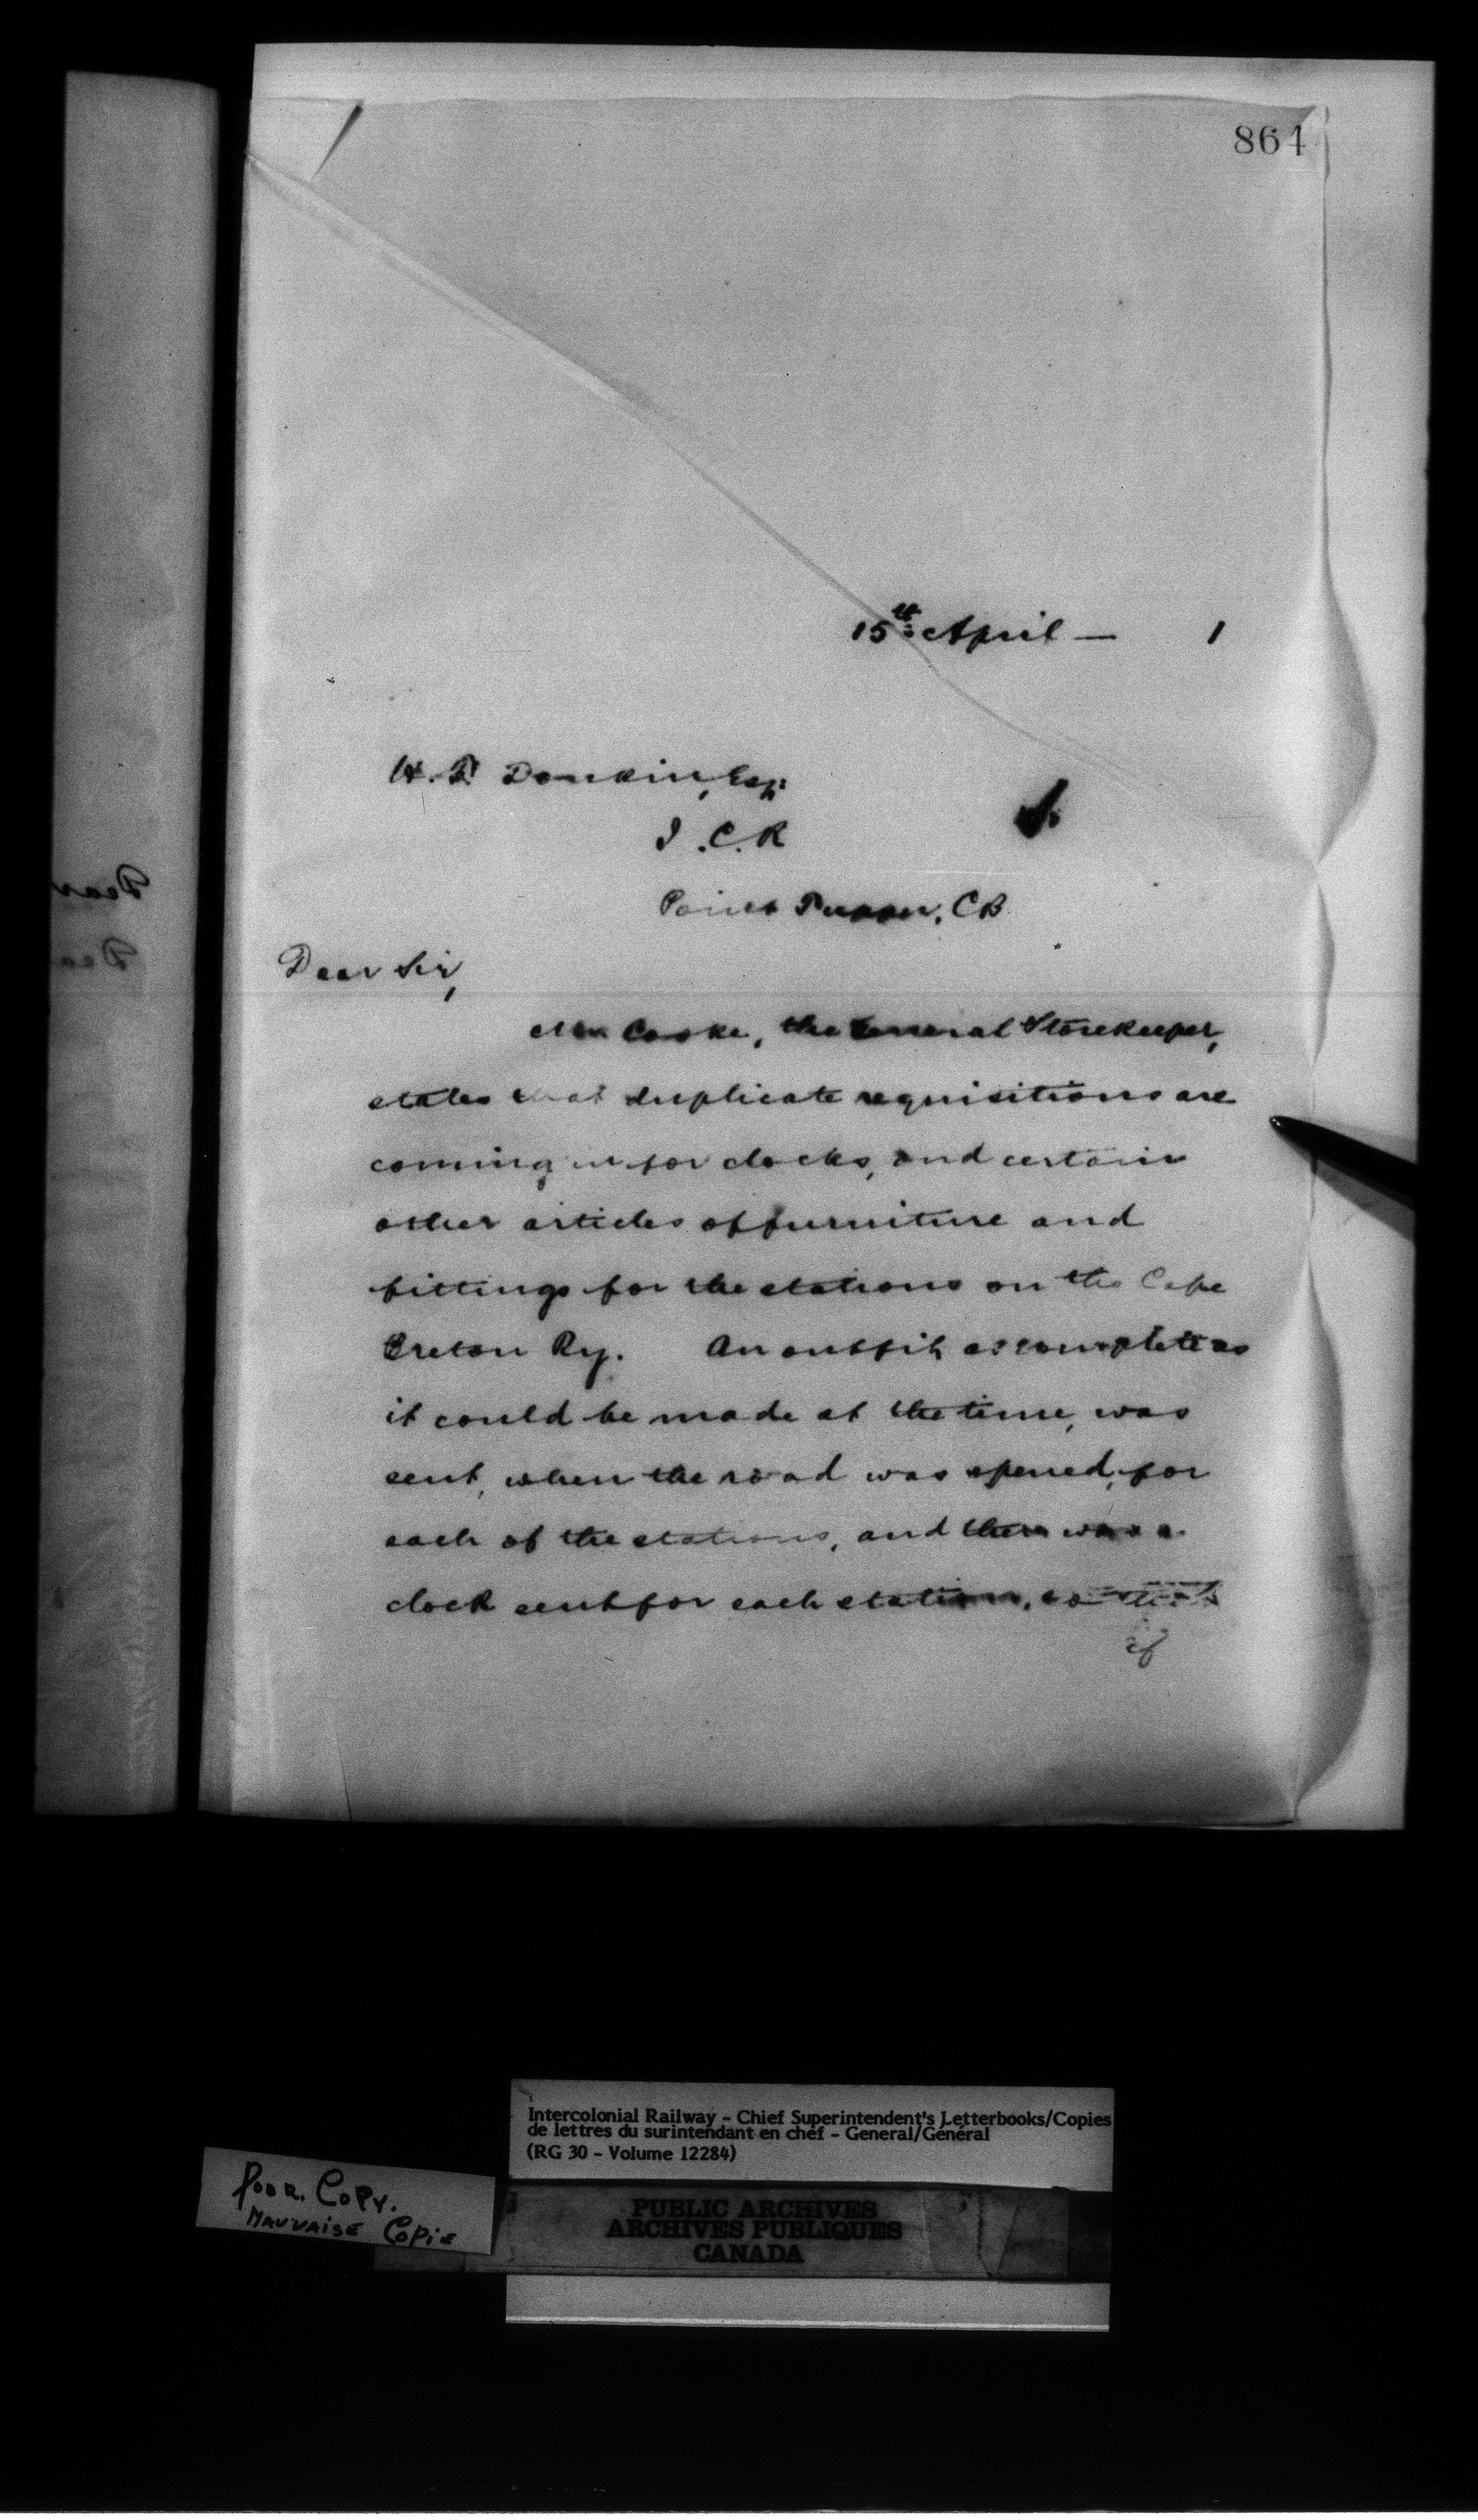 864
15th April — 1
H. F. Donkin, Esq:
I.C.R
Point Tupper, CB
Dear Sir,
Mr Cooke, the General Storekeeper,
states that duplicate requisitions are
coming in for clocks, and certain
other articles of furniture and
fittings for the stations on the Cape
Breton Ry. An outfit, as complete as
it could be made at the time, was
sent, when the road was opened, for
each of the stations, and there was a
clock sent for each station, so that
if
Dear
Dea
Intercolonial Railway - Chief Superintendent's Letterbooks/Copies
de lettres du surintendant en chef - General/Général
(RG 30 - Volume 12284)
Poor. Copy.
Mauvaise Copie
PUBLIC ARCHIVES
ARCHIVES PUBLIQUES
CANADA